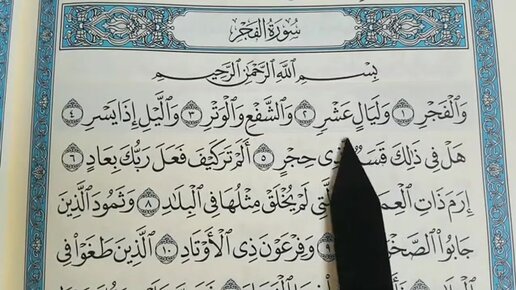 سُورَةُ الفَجۡرِ
بِسۡمِ ٱللَّهِ ٱلرَّحۡمَٰنِ ٱلرَّحِيمِ
وَٱلۡفَجۡرِ ١ وَلَيَالٍ عَشۡرٖ ٢ وَٱلشَّفۡعِ وَٱلۡوَتۡرِ ٣ وَٱلَّيۡلِ إِذَا يَسۡرِ ٤
هَلۡ فِي ذَٰلِكَ حِجۡرٍ ٥ أَلَمۡ تَرَ كَيۡفَ فَعَلَ رَبُّكَ بِعَادٍ ٦
إِرَمَ ذَاتِ لَمۡ يُخۡلَقۡ مِثۡلُهَا فِي ٱلۡبِلَٰدِ ٨ وَثَمُودَ ٱلَّذِينَ
جَابُواْ ٩ وَفِرۡعَوۡنَ ذِي ٱلۡأَوۡتَادِ ١٠ ٱلَّذِينَ طَغَوۡاْ فِي